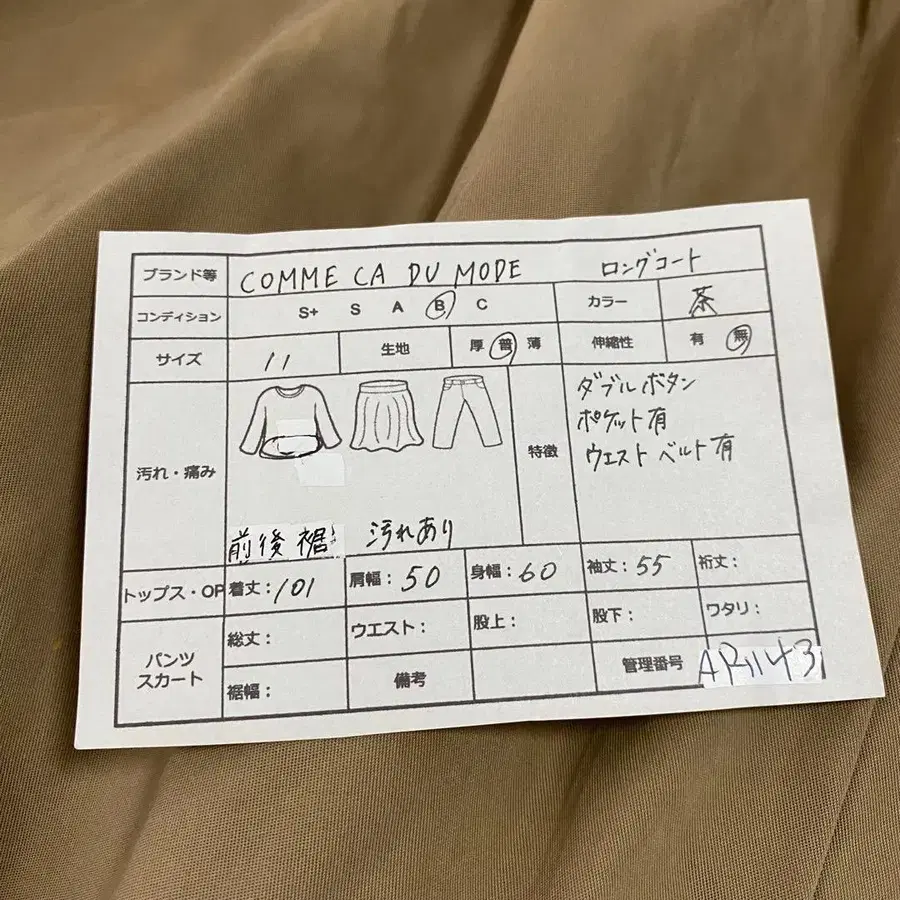 ブランド等 COMME CA DU MODE ロングコート
コンディション S+ S A B C カラー 茶
サイズ 11 生地 厚 普 薄 伸縮性 有 無
汚れ・痛み 特徴
ダブルボタン
ポケット有
ウエスト ベルト有
前後裾 汚れあり
トップス・OP 着丈：101 肩幅：50 身幅：60 袖丈：55 裄丈：
パンツ
スカート
総丈： ウエスト： 股上： 股下： ワタリ：
裾幅： 備考 管理番号 AR1143